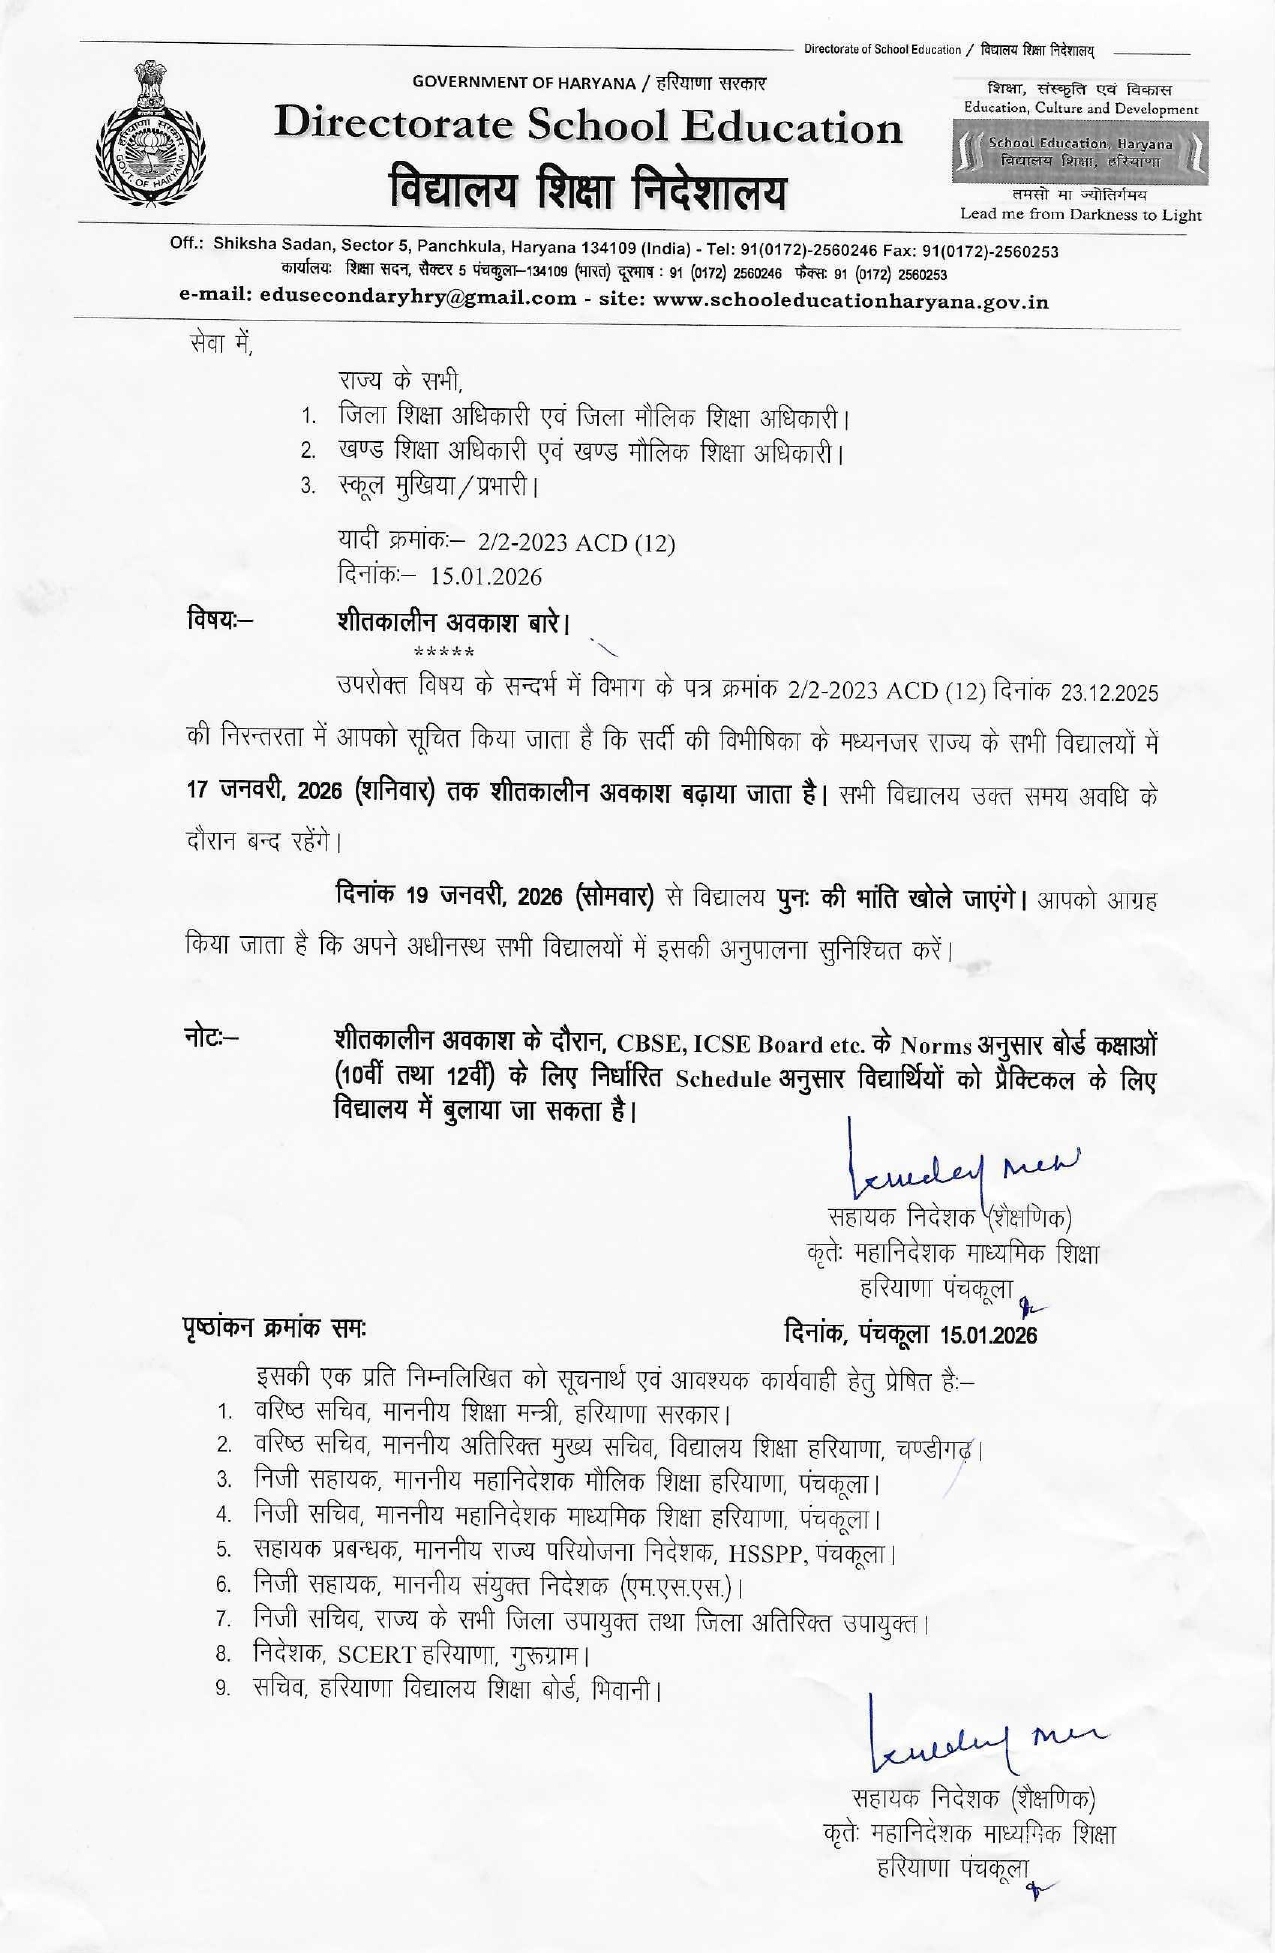 Directorate of School Education / विद्यालय शिक्षा निदेशालय
GOVERNMENT OF HARYANA / हरियाणा सरकार
Directorate School Education
विद्यालय शिक्षा निदेशालय
शिक्षा, संस्कृति एवं विकास
Education, Culture and Development
School Education, Haryana
विद्यालय शिक्षा, हरियाणा
तमसो मा ज्योतिर्गमय
Lead me from Darkness to Light
Off.: Shiksha Sadan, Sector 5, Panchkula, Haryana 134109 (India) - Tel: 91(0172)-2560246 Fax: 91(0172)-2560253
कार्यालयः शिक्षा सदन, सैक्टर 5 पंचकुला–134109 (भारत) दूरभाष : 91 (0172) 2560246 फैक्सः 91 (0172) 2560253
e-mail: edusecondaryhry@gmail.com - site: www.schooleducationharyana.gov.in
सेवा में,
राज्य के सभी,
1. जिला शिक्षा अधिकारी एवं जिला मौलिक शिक्षा अधिकारी।
2. खण्ड शिक्षा अधिकारी एवं खण्ड मौलिक शिक्षा अधिकारी।
3. स्कूल मुखिया/प्रभारी।
यादी क्रमांकः– 2/2-2023 ACD (12)
दिनांकः– 15.01.2026
विषयः– शीतकालीन अवकाश बारे।
*****
उपरोक्त विषय के सन्दर्भ में विभाग के पत्र क्रमांक 2/2-2023 ACD (12) दिनांक 23.12.2025
की निरन्तरता में आपको सूचित किया जाता है कि सर्दी की विभीषिका के मध्यनजर राज्य के सभी विद्यालयों में
17 जनवरी, 2026 (शनिवार) तक शीतकालीन अवकाश बढ़ाया जाता है। सभी विद्यालय उक्त समय अवधि के
दौरान बन्द रहेंगे।
दिनांक 19 जनवरी, 2026 (सोमवार) से विद्यालय पुनः की भांति खोले जाएंगे। आपको आग्रह
किया जाता है कि अपने अधीनस्थ सभी विद्यालयों में इसकी अनुपालना सुनिश्चित करें।
नोटः– शीतकालीन अवकाश के दौरान, CBSE, ICSE Board etc. के Norms अनुसार बोर्ड कक्षाओं
(10वीं तथा 12वीं) के लिए निर्धारित Schedule अनुसार विद्यार्थियों को प्रैक्टिकल के लिए
विद्यालय में बुलाया जा सकता है।
सहायक निदेशक (शैक्षणिक)
कृतेः महानिदेशक माध्यमिक शिक्षा
हरियाणा पंचकूला
पृष्ठांकन क्रमांक समः दिनांक, पंचकूला 15.01.2026
इसकी एक प्रति निम्नलिखित को सूचनार्थ एवं आवश्यक कार्यवाही हेतु प्रेषित हैः–
1. वरिष्ठ सचिव, माननीय शिक्षा मन्त्री, हरियाणा सरकार।
2. वरिष्ठ सचिव, माननीय अतिरिक्त मुख्य सचिव, विद्यालय शिक्षा हरियाणा, चण्डीगढ़।
3. निजी सहायक, माननीय महानिदेशक मौलिक शिक्षा हरियाणा, पंचकूला।
4. निजी सचिव, माननीय महानिदेशक माध्यमिक शिक्षा हरियाणा, पंचकूला।
5. सहायक प्रबन्धक, माननीय राज्य परियोजना निदेशक, HSSPP, पंचकूला।
6. निजी सहायक, माननीय संयुक्त निदेशक (एम.एस.एस.)।
7. निजी सचिव, राज्य के सभी जिला उपायुक्त तथा जिला अतिरिक्त उपायुक्त।
8. निदेशक, SCERT हरियाणा, गुरूग्राम।
9. सचिव, हरियाणा विद्यालय शिक्षा बोर्ड, भिवानी।
सहायक निदेशक (शैक्षणिक)
कृतेः महानिदेशक माध्यमिक शिक्षा
हरियाणा पंचकूला